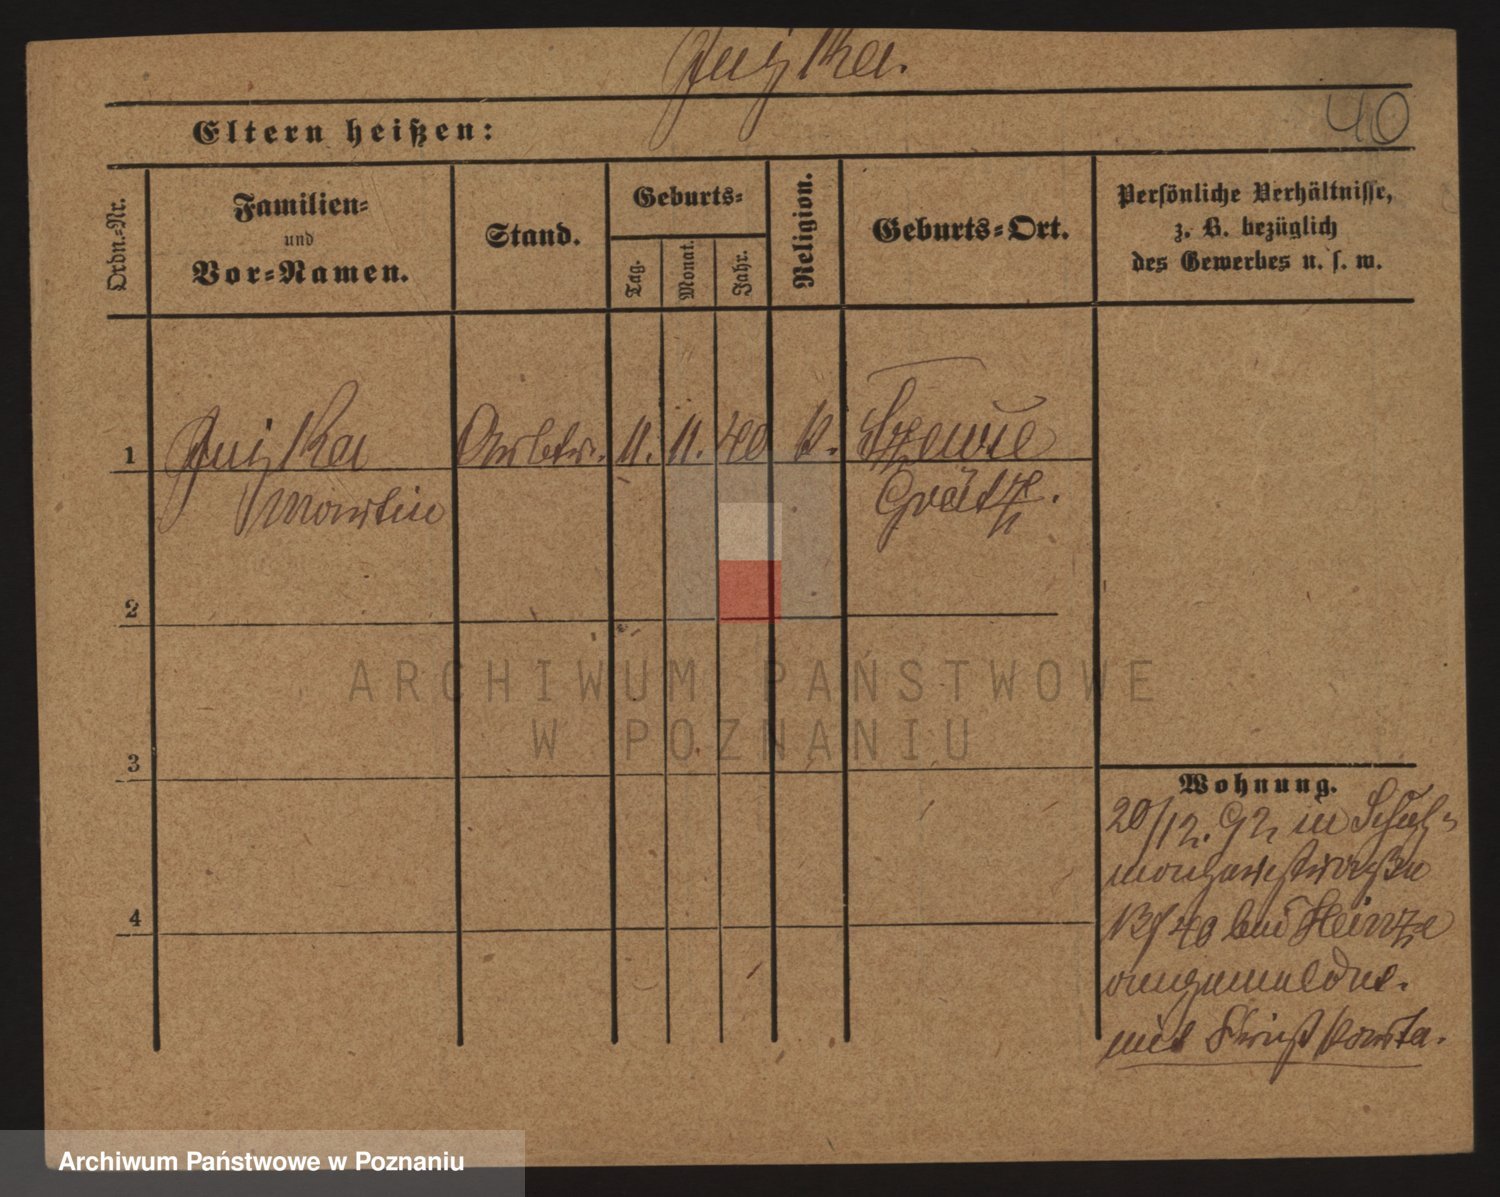 40
Eltern heißen:
Ordn.-Nr.
Familien-
und
Vor-Namen.
Stand.
Geburts-
Tag.
Monat.
Jahr.
Religion.
Geburts-Ort.
Persönliche Verhältnisse,
z. B. bezüglich
des Gewerbes u. s. w.
1
Arbtr. 11. 11. 40 k.
Martin
Grätz.
2
3
4
Wohnung.
20/12. 92 in
13/40 bei Heintze
angemeldet.
mit
ARCHIWUM PAŃSTWOWE
W POZNANIU
Archiwum Państwowe w Poznaniu